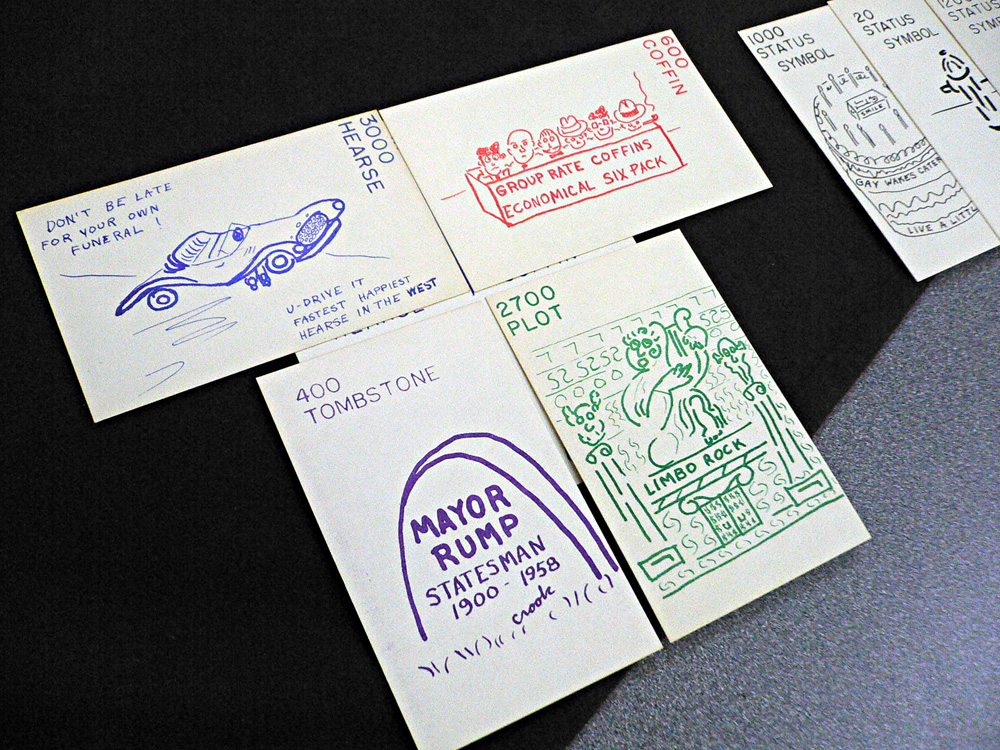 3000
HEARSE
DON'T BE LATE
FOR YOUR OWN
FUNERAL !
U-DRIVE IT
FASTEST HAPPIEST
HEARSE IN THE WEST
600
COFFIN
GROUP RATE COFFINS
ECONOMICAL SIX-PACK
1000
STATUS
SYMBOL
SMILE
GAY WAKES CATER
LIVE A LITTL
20
STATUS
SYMBOL
STATUS
SYM
400
TOMBSTONE
MAYOR
RUMP
STATESMAN
1900 - 1958
crook
2700
PLOT
7 7 7 7 7
LIMBO ROCK